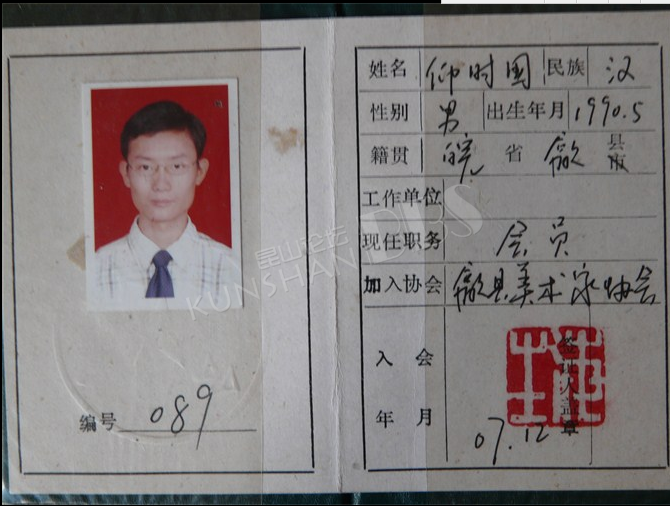 编号 089
姓名 仰时国 民族 汉
性别 男 出生年月 1990.5
籍贯 皖 省 歙 县市
工作单位
现任职务 会员
加入协会 歙县美术家协会
入会
年月 07.12
签证人盖章
昆山论坛
KUNSHAN BBS